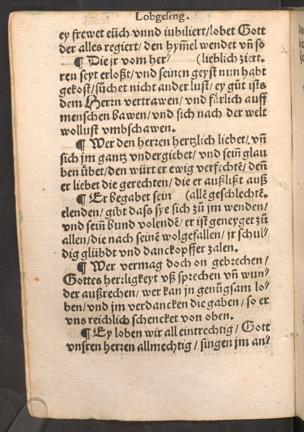 Lobgeseng.
ey frewet eüch vnnd iubiliert/lobet Gott
der alles regiert/den hym̃el wendet vñ so
¶ Die jr vom her⁊ (lieblich ziert.
ren seyt erlößt/vnd seinen geyst nun habt
gekost/süchet nicht ander lust/ey güt ists
dem Herrn vertrawen/vnd färlich auff
menschen bawen/vnd sich nach der welt
wollust vmbschawen.
¶ Wer den herren hertzlich liebet/vñ
sich jm gantz vndergiebet/vnd sein glau
ben übet/den würt er ewig verfechtē/deñ
er liebet die gerechten/die er außlißt auß
¶ Er begabet sein (allē geschlechtē.
elenden/gibt dass sye sich zů jm wenden/
vnd sein bund volendē/er ist geneyget zů
allen/die nach seinē wolgefallen/jr schul/
dig glübt vnd danckopffer zalen.
¶ Wer vermag doch on gebrechen/
Gottes herrligkeyt vß sprechen vñ wun/
der außrechen/wer kan jn genůgsam lo/
ben/vnd jm verdancken die gaben/so er
vns reichlich schencket von oben.
¶ Ey loben wir all eintrechtig/Gott
vnsren herren allmechtig/singen jm an⸗